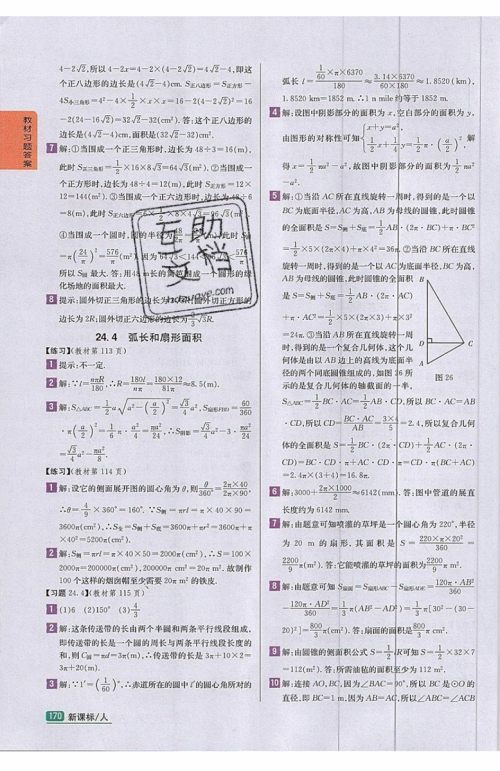 4-2√2,所以4-2x=4-2×(4-2√2)=4√2-4,即这
个正八边形的边长是(4√2-4)cm. S正八边形=S正方形-
4S小三角形=4²-4×1/2×x×x=16-2(4-2√2)²=16
-2(24-16√2)=32√2-32(cm²).答:这个正八边形的
边长是(4√2-4)cm,面积是(32√2-32)cm².
7 解:①当围成一个正三角形时,边长为48÷3=16(m),
此时S正三角形=1/2×16×8√3=64√3(m²).②当围成一
个正方形时,边长为48÷4=12(m),此时S正方形=12×
12=144(m²).③当围成一个正六边形时,边长为48÷6
=8(m),此时S正六边形=6×1/2×8×4√3=96√3(m²).
④当围成一个圆时,圆的半径为
=π(24/π)²=576/π(m²).因为
所以S圆最大.答:用48m长的篱笆围成一个圆形的绿
化场地的面积最大.
8 提示:圆外切正三角形的边长为2√3R;圆外切正方形的
边长为2R;圆外切正六边形的边长为2/3√3R.
24.4 弧长和扇形面积
【练习】(教材第113页)
1 提示:不一定.
2 解:∵l=nπR/180,∴R=180l/nπ=180×12/81π≈8.5(m).
3 解:S△ABC=1/2a√(a²-(a/2)²)=√3/4a²,S扇形FBD=60/360
·π(a/2)²=1/6π·a²/4=πa²/24,∴S阴影=√3/4a²-3·πa²/24
=√3/4a²-πa²/8.
【练习】(教材第114页)
1 解:设它的侧面展开图的圆心角为θ,则θ/360°=2π×40/2π×90,
∴θ=4/9×360°=160°. ∵S侧=πrl=π×40×90=
3600π(cm²),∴S全=S侧+S底=3600π+πr²=3600π+π
×40²=5200π(cm²).
2 解:S侧=πrl=π×40×50=2000π(cm²),∴S=100×
2000π=200000π(cm²),200000π cm²=20π m².故制作
100个这样的烟囱帽至少需要20π m²的铁皮.
【习题24.4】(教材第115页)
1 (1)6 (2)150° (3)4/3
2 解:这条传送带的长由两个半圆和两条平行线段组成,
即传送带的长是一个圆的周长与两条平行线段的长度的
和,则C圆=πd=3π(m),∴传送带的长是3π+10×2=
3π+20(m).
3 解:∵1′=(1/60)°,∴赤道所在的圆中1′的圆心角所对的
弧长l=1/60×π×6370/180≈3.14×6370/60×180≈1.8520(km),
1.8520 km=1852 m.∴1 n mile约等于1852 m.
4 解:设图中阴影部分的面积为x,空白部分的面积为y,
由图形的对称性可知{x+y=a², 1/2x+y=1/2π·(a/2)².解
得x=1/2πa²-a²,故图中阴影部分的面积为1/2πa²
-a².
5 解:①当沿AC所在直线旋转一周时,得到的是一个以
BC为底面半径,AC为高,AB为母线的圆锥,此时圆锥
的全面积是S=S侧+S底=1/2AB·(2π·BC)+π·BC²
=1/2×5×(2π×4)+π×4²=36π.②当沿BC所在直线
旋转一周时,得到的是一个以AC为底面半径,BC为高,
AB为母线的圆锥,此时圆锥的全面积是
S=S侧+S底=1/2AB·(2π·AC)
+π·AC²=1/2×5×(2π×3)+π×3²
=24π.③当沿AB所在直线旋转一周
时,得到的是一个复合几何体,这个几
何体是由以AB边上的高线为底面半
径的两个同底圆锥组成的,如图26所
示的是复合几何体的轴截面的一半,
S△ABC=1/2BC·AC=1/2AB·CD,所以BC·AC=AB
·CD,所以CD=BC·AC/AB=3×4/5=2.4,所以复合几何
体的全面积是S=1/2BC·(2π·CD)+1/2AC·(2π·
CD)=BC·CD·π+AC·CD·π=CD·π(BC+AC)
=2.4π×(3+4)=16.8π.
B
D
C
A
图26
6 解:3000+2π×1000/2≈6142(mm).答:图中管道的展直
长度约为6142 mm.
7 解:由题意可知喷灌的草坪是一个圆心角为220°,半径
为20 m的扇形,其面积是S=220×π×20²/360=
2200/9π(m²).答:它能喷灌的草坪的面积为2200/9π m².
8 解:由题意可知S扇面=S扇形ABC-S扇形ADE=120π·AB²/360
-120π·AD²/360=1/3π(AB²-AD²)=1/3π[30²-(30-
20)²]=800/3π(cm²).答:扇面的面积是800/3π cm².
9 解:由圆锥的侧面积公式S=1/2lR可知S=1/2×32×7
=112(m²).答:所需油毡的面积至少为112 m².
10 解:连接AO,BC,因为∠BAC=90°,所以BC是⊙O的
直径,即BC=1 m.因为AB=AC,所以∠ABC=∠ACB
教材习题答案
170 新课标/人